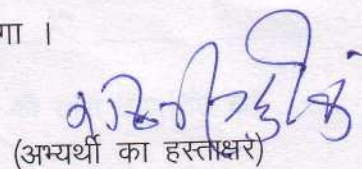 गा ।
(अभ्यर्थी का हस्ताक्षर)